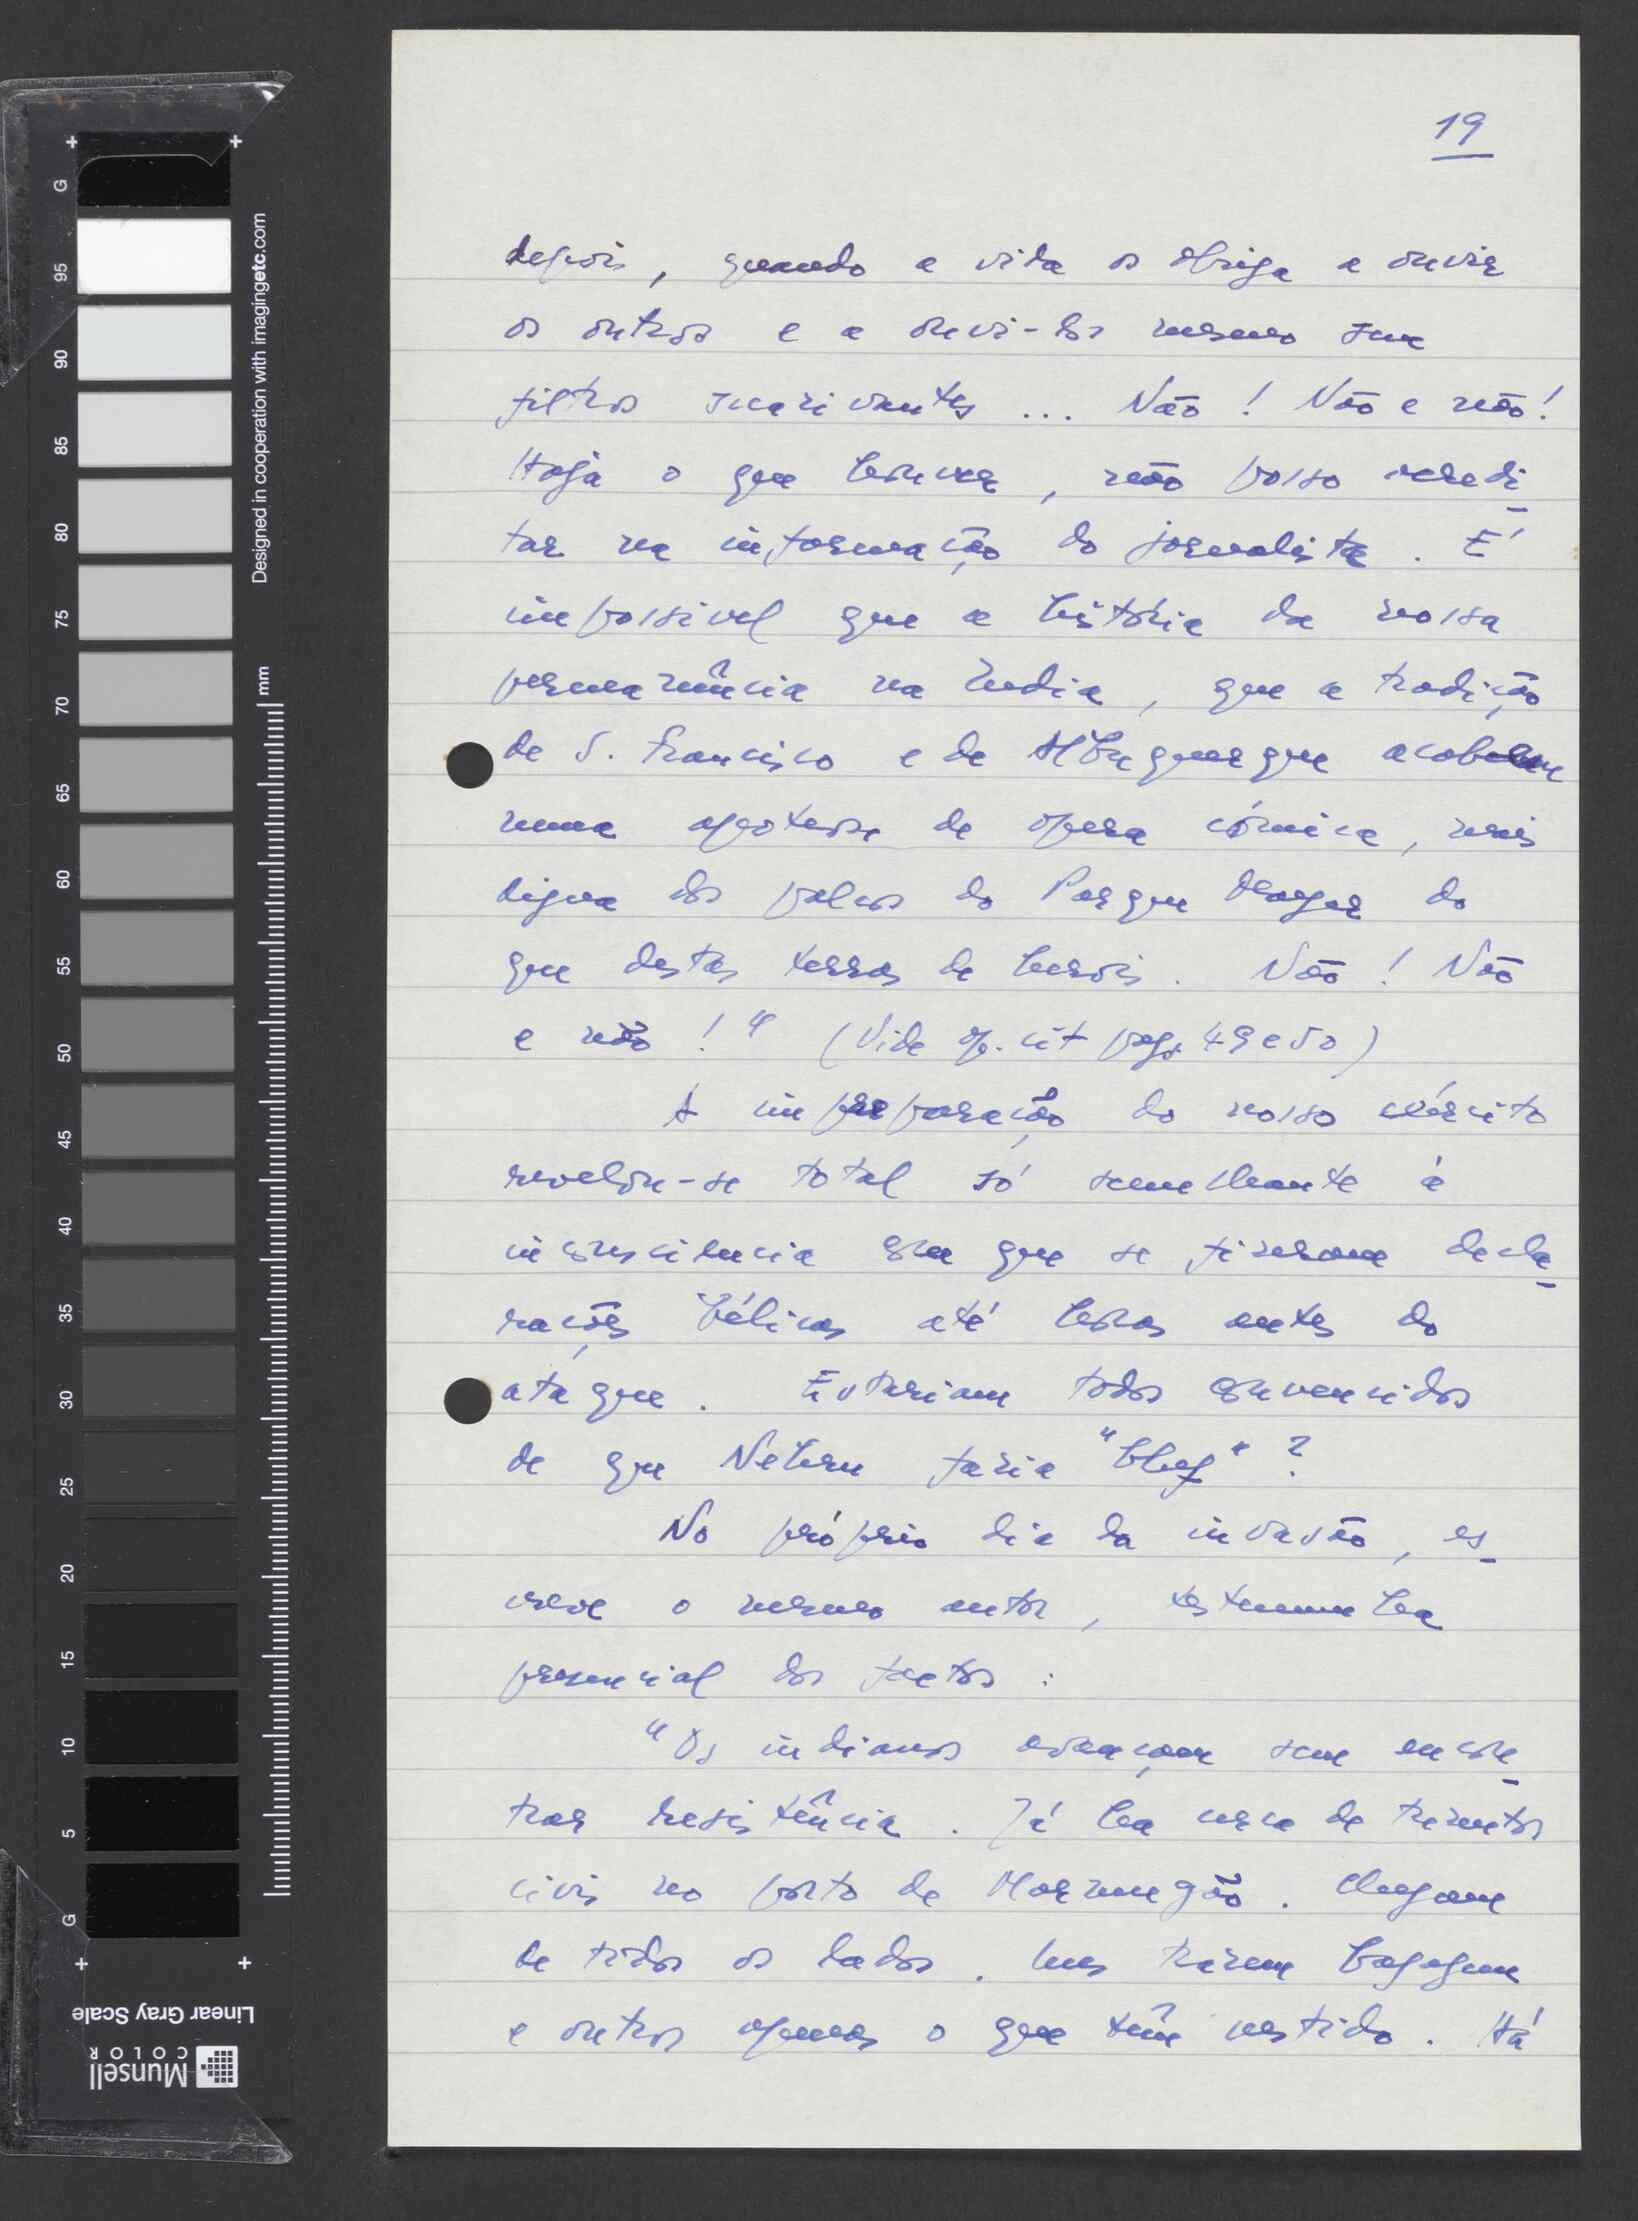 19
depois, quando a vida os obriga a ouvir
os outros e a ouvi-los mesmo sem
filtros suavizantes ... Não! Não e não!
Haja o que houver, não posso acredi-
tar na informação do jornalista. É
impossivel que a história da nossa
permanência na India, que a tradição
de S. Francisco e de Albuquerque acabem
numa apoteose de opera cómica, mais
digna dos palcos do Parque Mayer do
que destas terras de herois. Não! Não
e não!" (Vide op. cit pags. 49 e 50)
A impreparação do nosso exército
revelou-se total só semelhante à
inconsciencia com que se fizeram decla-
rações bélicas até horas antes do
ataque. Estariam todos convencidos
de que Nehru faria "bluf"?
No próprio dia da invasão, es-
creve o mesmo autor, testemunha
presencial dos factos:
"Os indianos avançam sem encon-
trar resistência. Já ha cerca de trezentos
civis no porto de Mormugão. Chegam
de todos os lados. Uns trazem bagagem
e outros apenas o que têm vestido. Há
Designed in cooperation with imagingetc.com
mm
G 95 90 85 80 75 70 65 60 55 50 45 40 35 30 25 20 15 10 5 G
Linear Gray Scale
Munsell
COLOR